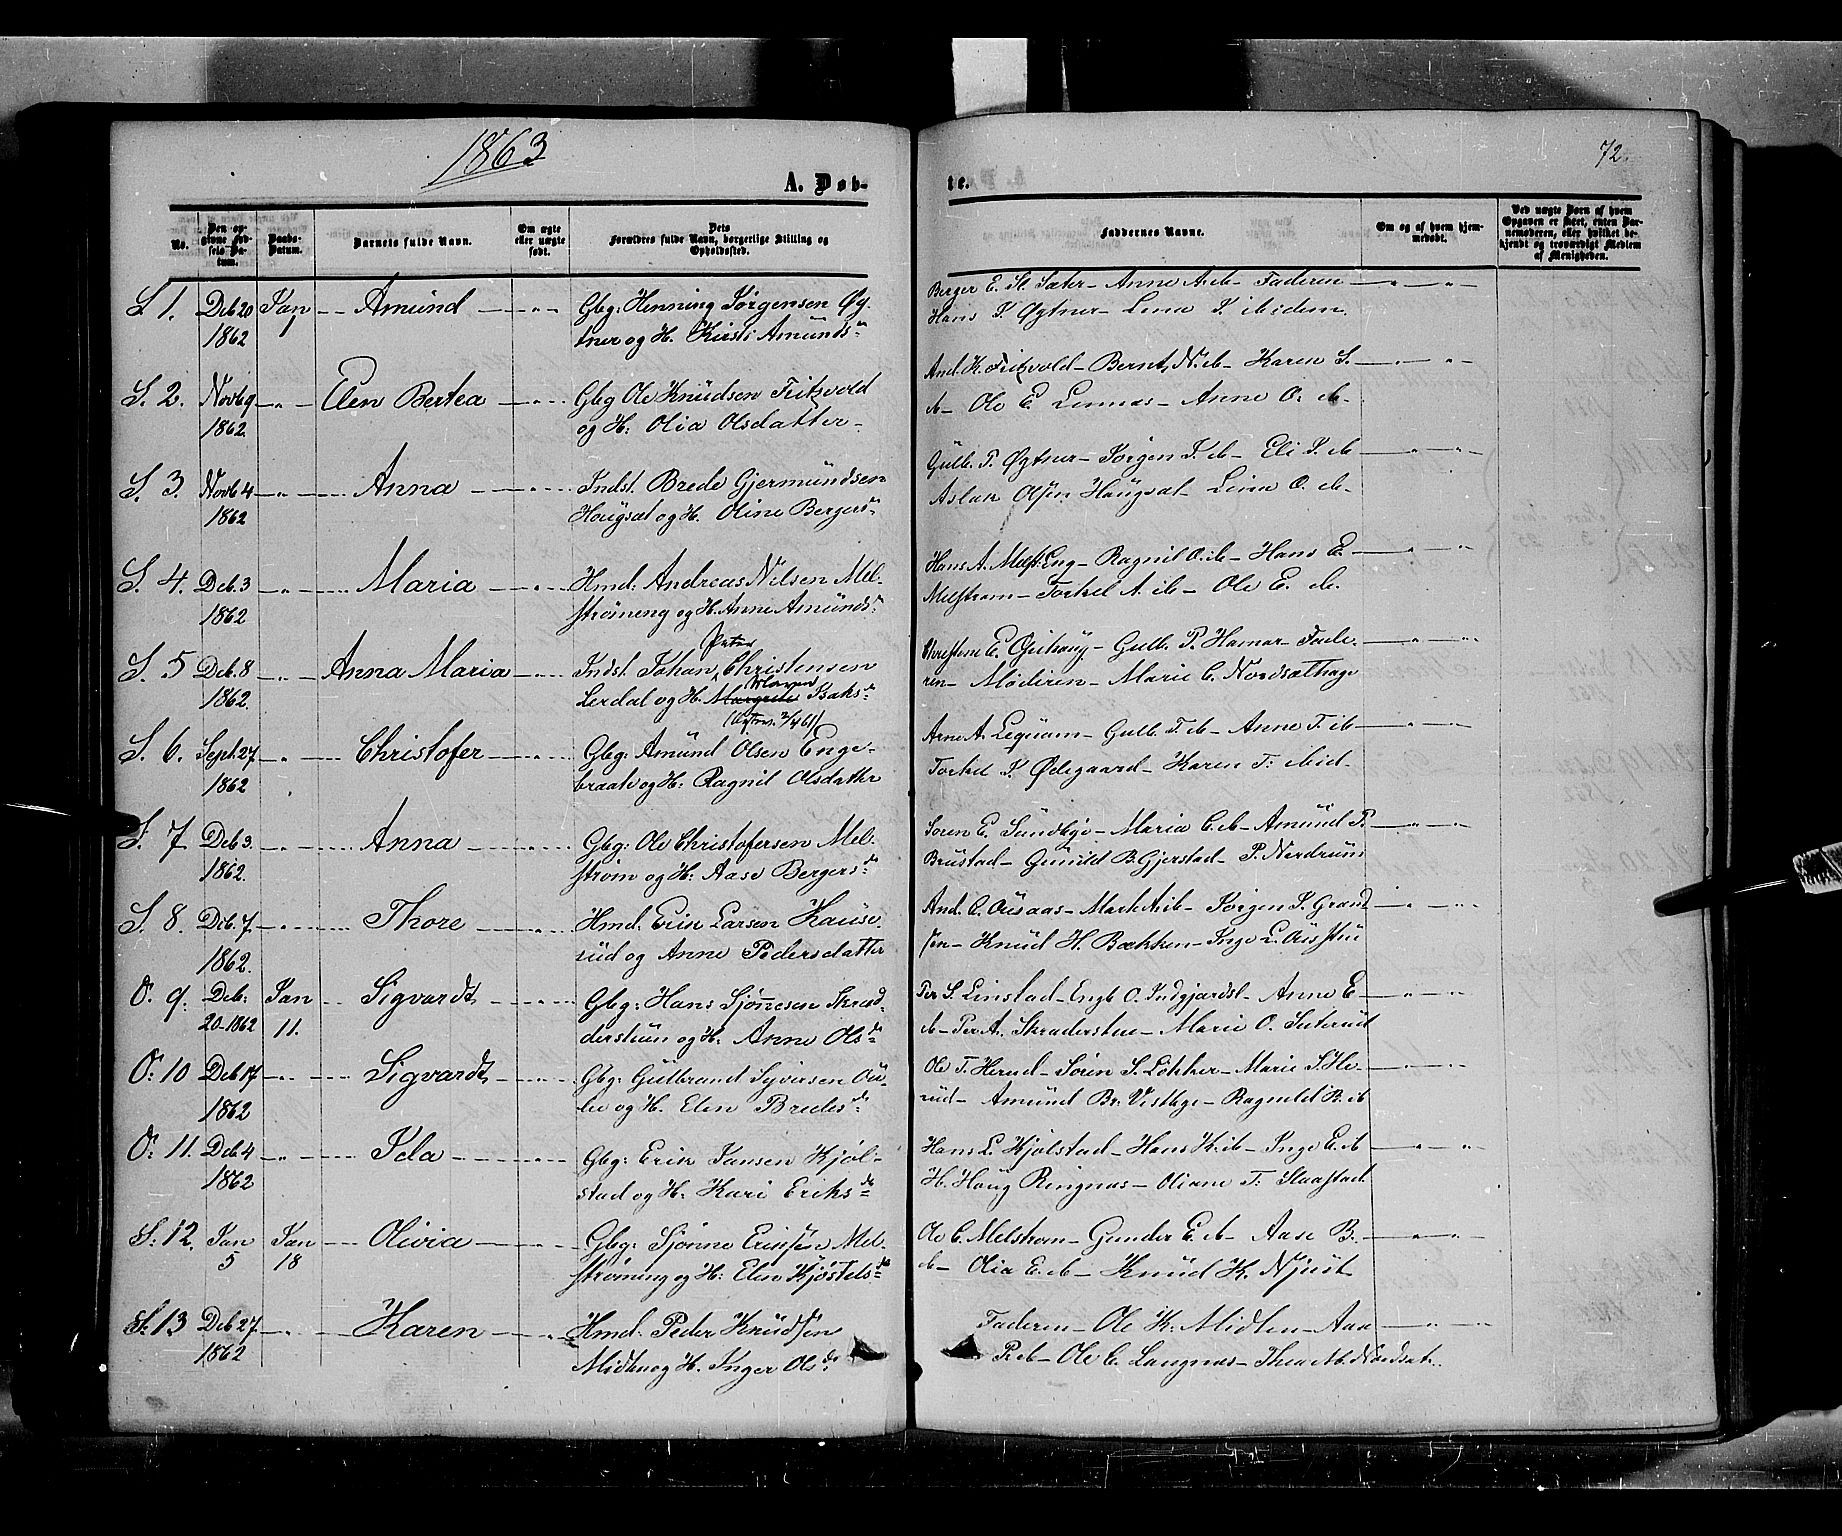 1863
72.
A. Døb-
te.
No.
Den op-
givne Fød-
sels Da-
tum.
Daabs-
Datum.
Barnets fulde Navn.
Om ægte
eller uægte
født.
Dets
Forældres fulde Navn, borgerlige Stilling og
Opholdssted.
Faddernes Navne.
Om og af hvem hjem-
medøbt.
Ved uægte Børn af hvem
Opgaven er skeet, enten Bar-
nemoderen, eller hvilket be-
kjendt og troværdigt Medlem
af Menigheden.
S. 1. Deb 20 Jan Amund Gbg: Henning Jørgensen Øg-
1862 1 tner og H. Kirsti Amunds d.
Berger E. St. Sæter - Anne A. ib - Faderen
Hans J. Øgtner - Lina J. ibidem.
S. 2. Novb 9 Elen Bertea Gbg Ole Knudsen Fritzvold
1862. og H: Olia Olsdatter
And. K. Fritzvold - Bernt N. ib - Karen S.
ib - Ole E. Lennæs - Anne O. ib -
S. 3. Novb 4 Anna Indst. Brede Gjermundsen
1862 Hougsæt og H. Oline Bergers d.
Gulb. P. Øgtner - Jørgen J. ib - Eli J. ib
Aslak Olsen Haugsæt - Lina O. ib -
S. 4. Deb. 3 Maria Hmd: Andreas Nilsen Mel-
1862 strømeng og H. Anne Amunds d.
Hans A. Melst: Eng - Ragnil O. ib - Hans E.
Melstrøm - Torkel A. ib - Ole E. ib.
Peter
S. 5 Deb. 8 Anna Maria Indst. Johan Christensen
Maren
1862. Lerdal og H. Margrete Isaks d.
Gulb. P. Hamar - Fade-
ren - Moderen - Marie C. Nordsæthage
S. 6. Sept. 27 Christofer Gbg: Amund Olsen Enge-
1862 braate og H: Ragnil Olsdattr
Arne A. Lequam - Gulb. T. ib - Anne T. ib
Torkel J. Ødegaard - Karen T. ibid -
S. 7 Deb 3. Anna Gbg: Ole Christofersen Mel-
1862. strøm og H: Aase Bergers d.
Søren E. Sundbye - Maria C. ib - Amund P.
Brustad - Gunild B. Gjerstad - P. Nerdrum
S. 8. Deb. 7 Thore Hmd: Erik Larsen Kause-
1862. rud og Anne Pedersdatter
And. C. Ousaas - Jørgen J. Grand
sen - Knud H. Bækken - Inge L. Ousstu
O. 9. Deb: Jan Sigvardt Gbg: Hans Sjønesen Skræd-
20-1862 11. derstuen og H. Anne Ols d.
Per S. Linstad - Engb O. Indgjærdst. - Anne E
ib - Per A. Skræderstue - Marie O. Seterud
O: 10 Deb 17 Sigvardt Gbg: Gulbrand Syversen Ou-
1862 lie og H. Elen Bredes d.
Ole T. Herud - Søren S. Løkker - Marie S. He-
rud - Amund Br. Vestbye - Ragnild B. ib
O: 11. Deb 4 Ida Gbg: Erik Jansen Kjøl-
1862 stad og H. Kari Eriks d.
Hans L. Kjølstad - Hans K. ib - Inge E. ib
H. Haug Ringnæs - Oliane T. Slaastad
S: 12. Jan Jan Olivia Gbg: Sjønne Eriksen Mel-
5 18 strømeng og H: Elen Kjøstels d.
Ole C. Melstrøm - Gunder E. ib - Aase B.
ib - Olia E. ib - Knud K. Njust
S: 13 Deb 27. Karen Hmd: Peder Knudsen
1862 Midtlien og H. Inger Ols d.
Faderen - Ole K. Midtlien - Aase
P. ib - Ole C. Langnæs - Thea M. Nordsæt.